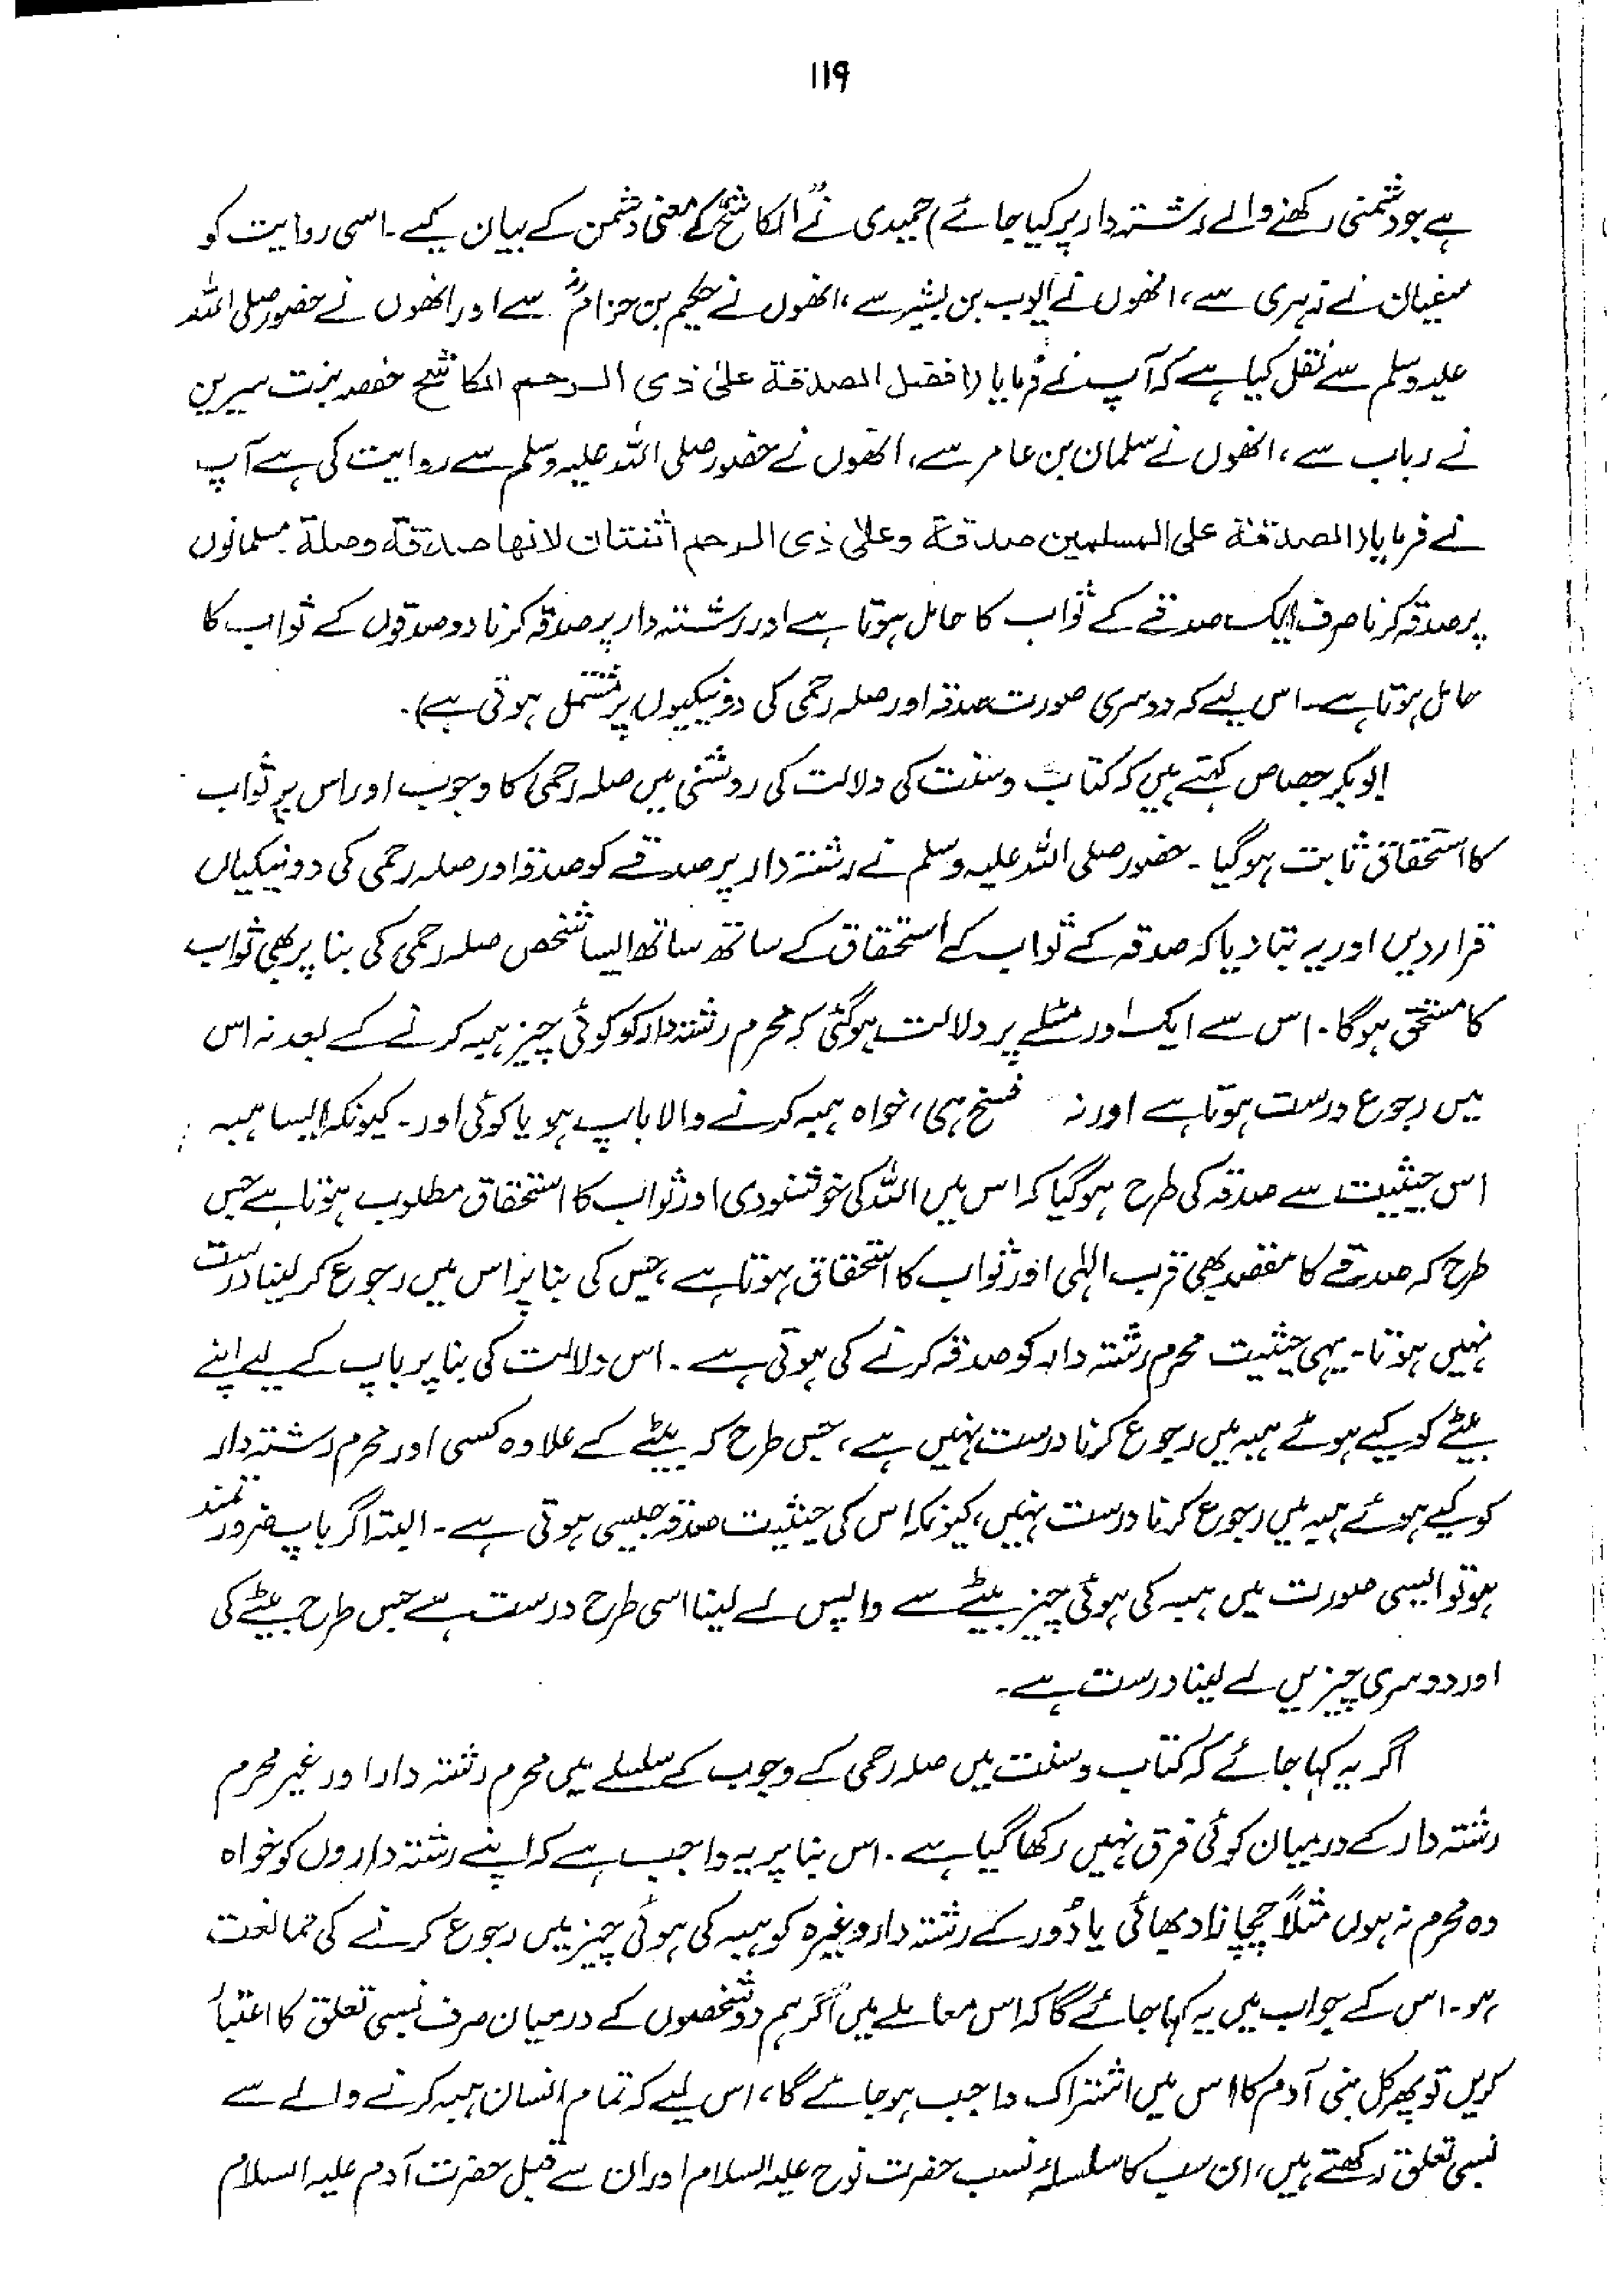 ۱۱۹
ہے جو دشمنی رکھنے والے رشتہ دار پر کیا جائے) حمیدی نے "الکاشح" کے معنی دشمن کے بیان کیے۔ اسی روایت کو
سفیان نے زہری سے، انھوں نے ایوب بن بشیر سے، انھوں نے حکیم بن حزامؓ سے اور انھوں نے حضور صلی اللہ
علیہ وسلم سے نقل کیا ہے کہ آپ نے فرمایا (افضل الصدقة علیٰ ذی الرحم الکاشح حفصہ بنت سیرین
نے رباب سے، انھوں نے سلمان بن عامر سے، انھوں نے حضور صلی اللہ علیہ وسلم سے روایت کی ہے آپ
نے فرمایا (الصدقة علی المسلمین صدقة وعلیٰ ذی الرحم اثنتان لانها صدقة وصلة۔ مسلمانوں
پر صدقہ کرنا صرف ایک صدقے کے ثواب کا حامل ہوتا ہے اور رشتہ دار پر صدقہ کرنا دو صدقوں کے ثواب کا
حامل ہوتا ہے۔ اس لیے کہ دوسری صورت صدقہ اور صلہ رحمی کی دو نیکیوں پر مشتمل ہوتی ہے)۔
ابوبکر جصاص کہتے ہیں کہ کتاب و سنت کی دلالت کی روشنی میں صلہ رحمی کا وجوب اور اس پر ثواب
کا استحقاق ثابت ہوگیا۔ حضور صلی اللہ علیہ وسلم نے رشتہ دار پر صدقے کو صدقہ اور صلہ رحمی کی دو نیکیاں
قرار دیں اور یہ بتا دیا کہ صدقہ کے ثواب کے استحقاق کے ساتھ ساتھ ایسا شخص صلہ رحمی کی بنا پر بھی ثواب
کا مستحق ہوگا۔ اس سے ایک اور مسئلے پر دلالت ہوگئی کہ محرم رشتہ دار کو کوئی چیز ہبہ کرنے کے بعد نہ اس
میں رجوع درست ہوتا ہے اور نہ فسخ ہی، خواہ ہبہ کرنے والا باپ ہو یا کوئی اور۔ کیونکہ ایسا ہبہ
اس حیثیت سے صدقہ کی طرح ہوگیا کہ اس میں اللہ کی خوشنودی اور ثواب کا استحقاق مطلوب ہوتا ہے جس
طرح کہ صدقے کا مقصد بھی قرب الٰہی اور ثواب کا استحقاق ہوتا ہے، جس کی بنا پر اس میں رجوع کر لینا درست
نہیں ہوتا۔ یہی حیثیت محرم رشتہ دار کو صدقہ کرنے کی ہوتی ہے۔ اس دلالت کی بنا پر باپ کے لیے اپنے
بیٹے کو کیے ہوئے ہبہ میں رجوع کرنا درست نہیں ہے، جس طرح کہ بیٹے کے علاوہ کسی اور محرم رشتہ دار
کو کیے ہوئے ہبہ میں رجوع کرنا درست نہیں، کیونکہ اس کی حیثیت صدقہ جیسی ہوتی ہے۔ البتہ اگر باپ ضرورتمند
ہو تو ایسی صورت میں ہبہ کی ہوئی چیز بیٹے سے واپس لے لینا اسی طرح درست ہے جس طرح بیٹے کی
اور دوسری چیزیں لے لینا درست ہے۔
اگر یہ کہا جائے کہ کتاب و سنت میں صلہ رحمی کے وجوب کے سلسلے میں محرم رشتہ دار اور غیر محرم
رشتہ دار کے درمیان کوئی فرق نہیں رکھا گیا ہے۔ اس بنا پر یہ واجب ہے کہ اپنے رشتہ داروں کو خواہ
وہ محرم نہ ہوں مثلاً چچا زاد بھائی یا دُور کے رشتہ دار وغیرہ کو ہبہ کی ہوئی چیز میں رجوع کرنے کی ممانعت
ہو۔ اس کے جواب میں یہ کہا جائے گا کہ اس معاملے میں اگر ہم دو شخصوں کے درمیان صرف نسبی تعلق کا اعتبار
کریں تو پھر کل بنی آدم کا اس میں اشتراک واجب ہو جائے گا، اس لیے کہ تمام انسان ہبہ کرنے والے سے
نسبی تعلق رکھتے ہیں، ان سب کا سلسلۂ نسب حضرت نوح علیہ السلام اور ان سے قبل حضرت آدم علیہ السلام